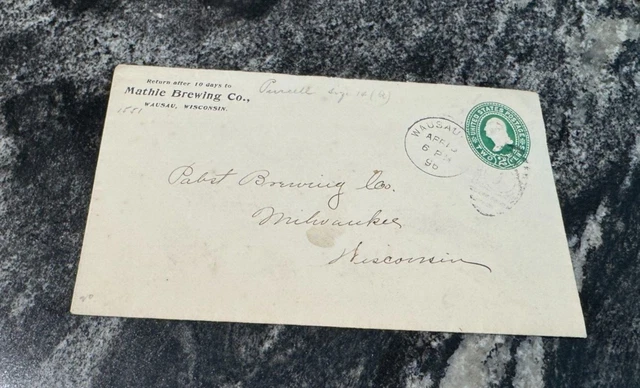 Return after 10 days to
Mathie Brewing Co.,
WAUSAU, WISCONSIN.
1881
Purcell
WAUSAU
APR
6 PM
96
UNITED STATES POSTAGE
TWO 2 CENTS
Pabst Brewing Co.
Milwaukee
Wisconsin